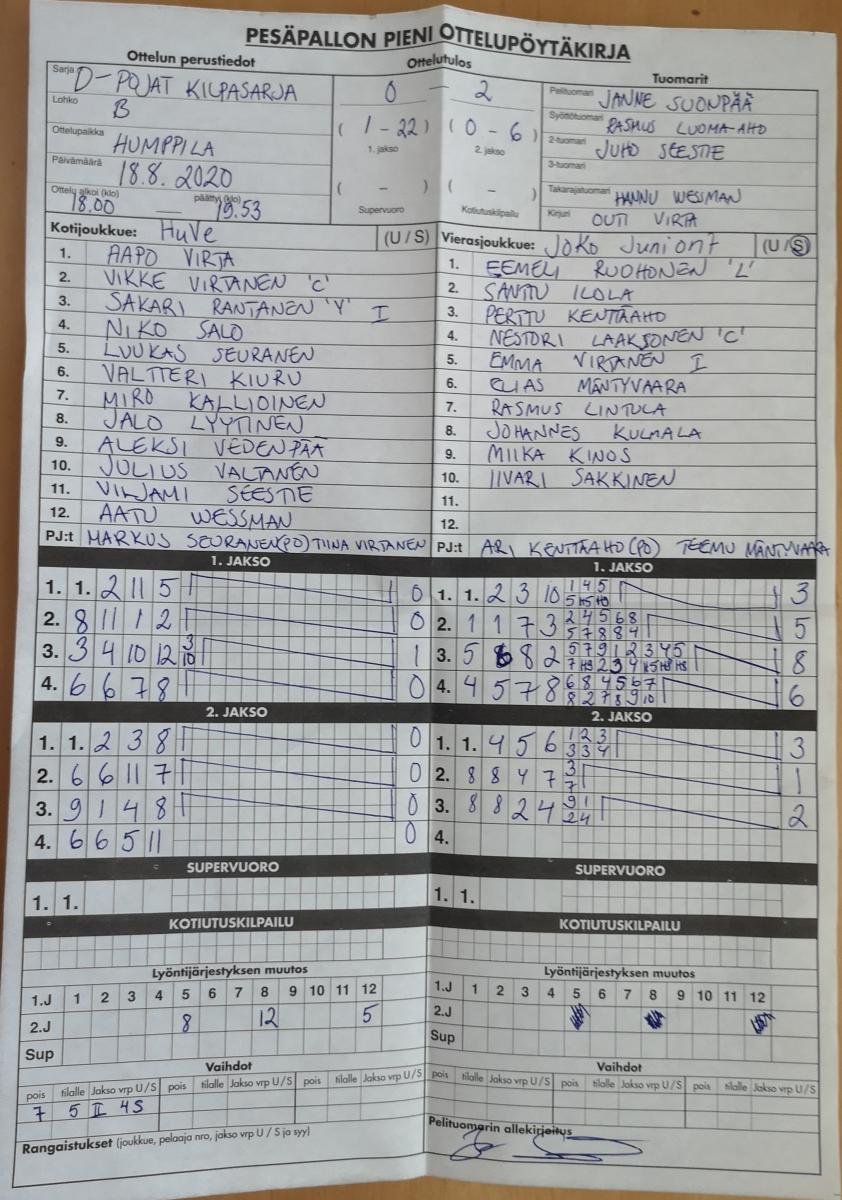 PESÄPALLON PIENI OTTELUPÖYTÄKIRJA
Ottelun perustiedot
Ottelutulos
Tuomarit
Sarja D-POJAT KILPASARJA
Lohko B
Ottelupaikka HUMPPILA
Päivämäärä 18.8. 2020
Ottelu alkoi (klo) 18.00 — päättyi (klo) 19.53
0 — 2
( 1 - 22 ) ( 0 - 6 )
1. jakso 2. jakso
( - ) ( - )
Supervuoro Kotiutuskilpailu
Pelituomari JANNE SUONPÄÄ
Syöttötuomari RASMUS LUOMA-AHO
2-tuomari JUHO SEESTIE
3-tuomari
Takarajatuomari HANNU WESSMAN
Kirjuri OUTI VIRTA
Kotijoukkue: HuVe (U / S)
1. AAPO VIRTA
2. VIKKE VIRTANEN 'C'
3. SAKARI RANTANEN 'Y' I
4. NIKO SALO
5. LUUKAS SEURANEN
6. VALTTERI KIURU
7. MIRO KALLIOINEN
8. JALO LYYTINEN
9. ALEKSI VEDENPÄÄ
10. JULIUS VALTANEN
11. VILJAMI SEESTIE
12. AATU WESSMAN
PJ:t MARKUS SEURANEN(PO) TIINA VIRTANEN
Vierasjoukkue: JoKo Juniorit (U / S)
1. EEMELI RUOHONEN 'L'
2. SANTTU ILOLA
3. PERTTU KENTTÄAHO
4. NESTORI LAAKSONEN 'C'
5. EMMA VIRTANEN I
6. ELIAS MÄNTYVAARA
7. RASMUS LINTULA
8. JOHANNES KULMALA
9. MIIKA KINOS
10. IIVARI SAKKINEN
11.
12.
PJ:t ARI KENTTÄAHO (PO) TEEMU MÄNTYVAARA
1. JAKSO
1. 1. 2 11 5 0
2. 8 11 1 2 0
3. 3 4 10 12 3 1
10
4. 6 6 7 8 0
2. JAKSO
1. 1. 2 3 8 0
2. 6 6 11 7 0
3. 9 1 4 8 0
4. 6 6 5 11 0
SUPERVUORO
1. 1.
KOTIUTUSKILPAILU
Lyöntijärjestyksen muutos
1.J 1 2 3 4 5 6 7 8 9 10 11 12
2.J 8 12 5
Sup
Vaihdot
pois tilalle Jakso vrp U / S pois tilalle Jakso vrp U / S pois tilalle Jakso vrp U / S
7 5 II 4S
Rangaistukset (joukkue, pelaaja nro, jakso vrp U / S ja syy)
1. JAKSO
1. 1. 2 3 10 1 4 5 3
2. 1 1 7 3 2 4 5 6 8 5
5 7 8 8 4
3. 5 8 2 5 7 9 1 2 3 4 5 8
4. 4 5 7 8 6 8 4 5 6 7 6
8 2 7 8 9 10
2. JAKSO
1. 1. 4 5 6 1 2 3 3
3 3 4
2. 8 8 4 7 3 1
7
3. 8 8 2 4 9 1 2
2 4
4.
SUPERVUORO
1. 1.
KOTIUTUSKILPAILU
Lyöntijärjestyksen muutos
1.J 1 2 3 4 5 6 7 8 9 10 11 12
2.J
Sup
Vaihdot
pois tilalle Jakso vrp U / S pois tilalle Jakso vrp U / S pois tilalle Jakso vrp U / S
Pelituomarin allekirjoitus